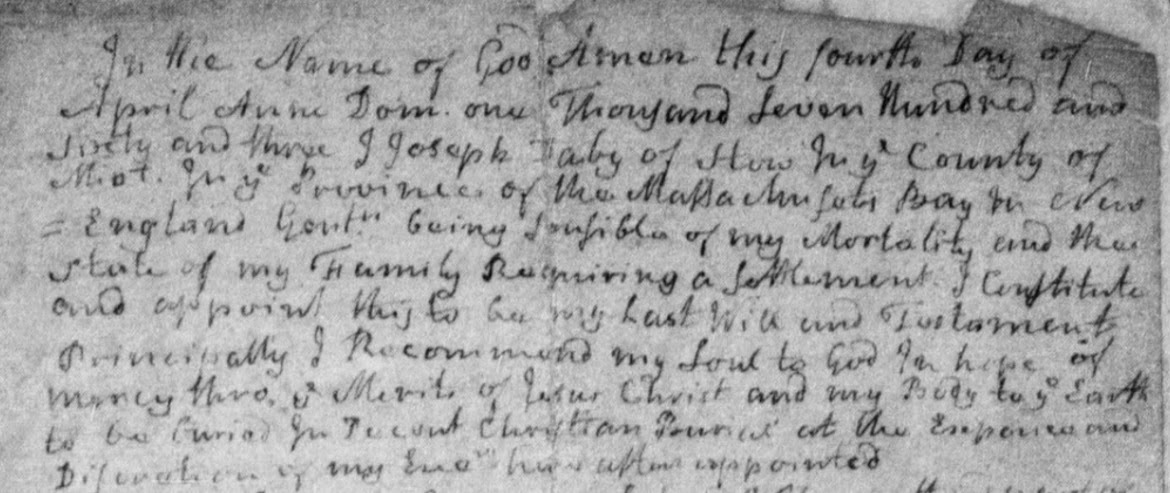 In the Name of God Amen this fourth Day of
April Anne Dom. one Thousand Seven Hundred and
sixty and three I Joseph Taby of Stow In ye County of
Midx. In ye Province of the Massachusets Bay In New
= England Gent.n being Sensible of my Mortality and the
State of my Family Requiring a Settlement I Constitute
and appoint this to be my Last Will and Testament
Principally I Recommend my Soul to God In hope of
mercy thro. ye Merits of Jesus Christ and my Body to ye Earth
to be Buried In Decent Christian Burial at the Expence and
Discretion of my Exe.rs hereafter appointed